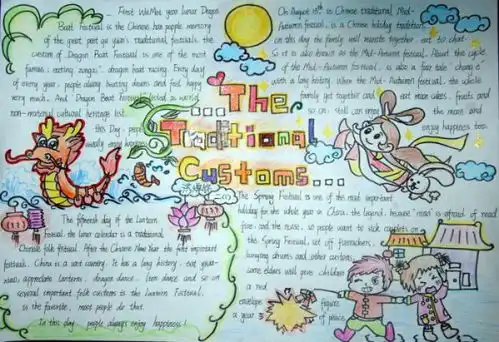 First WeMet year lunar Dragon
Boat Festival is the Chinese han people memory
of the great poet qu yuan's traditional festivals. the
custom of Dragon Boat Festival is one of the most
famous: eating zongzi, dragon boat racing. Every day
of every year, people along beating drums and feel happy
very much. And Dragon Boat Festival listed as world
non-material cultural heritage list.
this Day, people
usually enjoy
On August 15th is Chinese traditional Mid-
Autumn festival. is a Chinese holiday traditional
on this day the family will muster together, eat, to chat.
So it is also known as the Mid-Autumn festival. About the cycle
of the Mid-Autumn festival, is also a fair tale "change"
with a long history. When the Mid-Autumn festival, the whole
family get together and eat moon cakes, fruits and
so on, still can enjoy the moon, and
enjoy happiness too.
...The
Traditional
Customs...
The fifteenth day of the lantern
Festival. the lunar calendar is a traditional
Chinese folk festival. After the Chinese New Year the first important
festival. China is a vast country. It has a long history. eat
appreciate lanterns. dragon dance. lion dance and so on
several important folk customs is the Lantern Festival.
is the favorite, most people do that.
In this day people always enjoy happiness!
The Spring Festival is one of the most important
holiday for the whole year in China. the legend, because is afraid of read
fire and the noise, so people want to sick couplets on
the Spring Festival, set off firecrackers,
hanging drums and other customs,
some elders will give children
a red
envelope, figure
a year of peace.